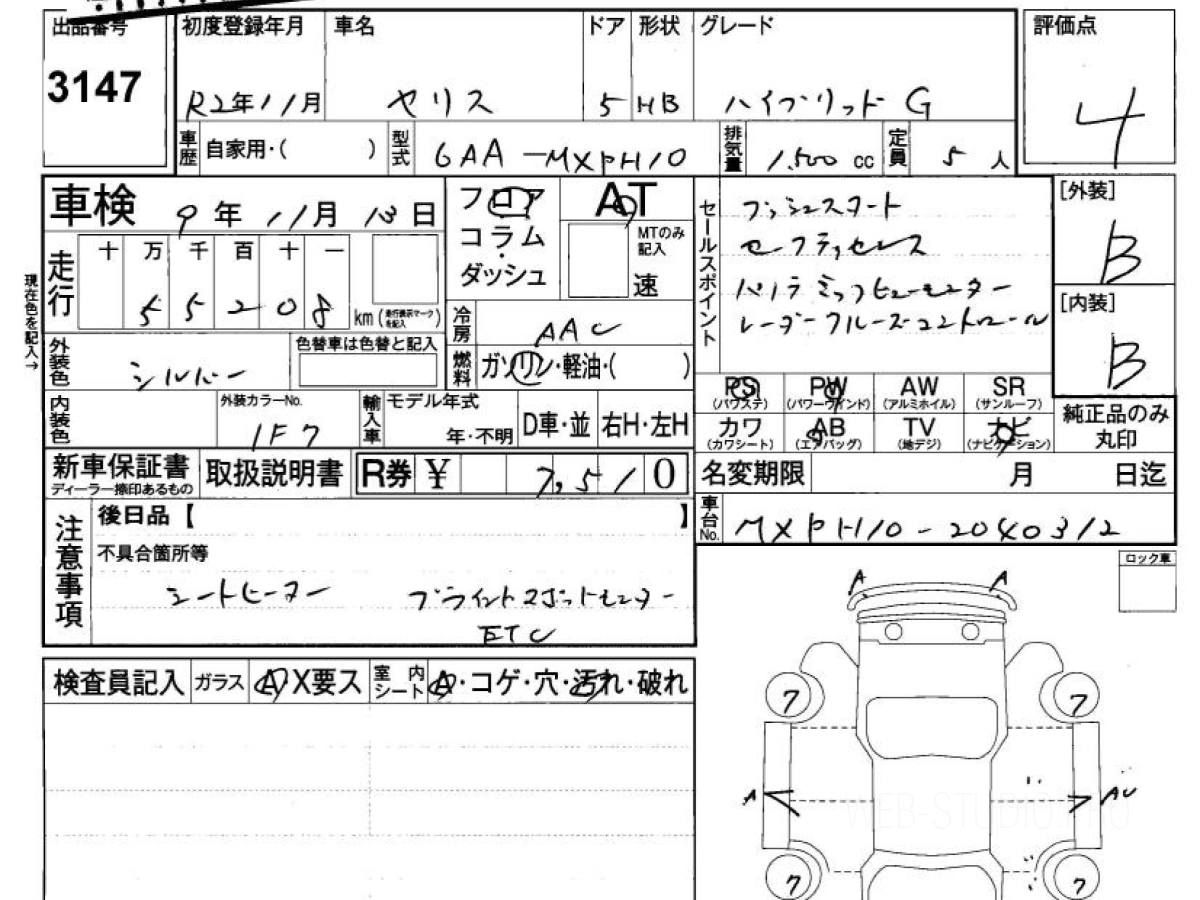 出品番号
3147
初度登録年月
R2年11月
車名
ヤリス
ドア
5
形状
HB
グレード
ハイブリッド G
評価点
4
車歴
自家用・( )
型式
6AA-MXPH10
排気量
1,500 cc
定員
5 人
車検
9年11月13日
フロア
コラム
ダッシュ
AT
MTのみ記入
速
セールスポイント
プッシュスタート
セーフティセンス
パノラミックビューモニター
レーダークルーズコントロール
[外装]
B
[内装]
B
現在色を記入→
走行
十 万 千 百 十 一
5 5 2 0 8
km(走行表示マークを記入)
冷房
AAC
外装色
シルバー
色替車は色替と記入
燃料
ガソリン・軽油・( )
PS
(パワステ)
PW
(パワーウインド)
AW
(アルミホイル)
SR
(サンルーフ)
カワ
(カワシート)
AB
(エアバッグ)
TV
(地デジ)
ナビ
(ナビゲーション)
純正品のみ
丸印
内装色
外装カラーNo.
1F7
輸入車
モデル年式
年・不明
D車・並
右H・左H
新車保証書
ディーラー捺印あるもの
取扱説明書
R券 ¥ 7,510
名変期限 月 日迄
車台No.
MXPH10-2040312
注意事項
後日品【 】
不具合箇所等
シートヒーター ブラインドスポットモニター
ETC
ロック車
検査員記入
ガラス
A X要ス
室内
シート
A・コゲ・穴・汚れ・破れ
A A
7 7
A AU
7 7
WEB-STUDIO.RU